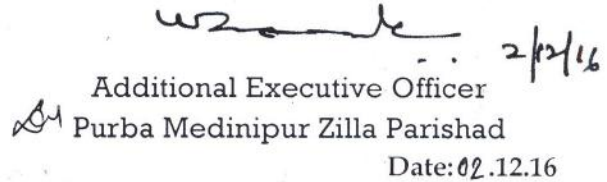 2/12/16
Additional Executive Officer
Purba Medinipur Zilla Parishad
Date: 02.12.16